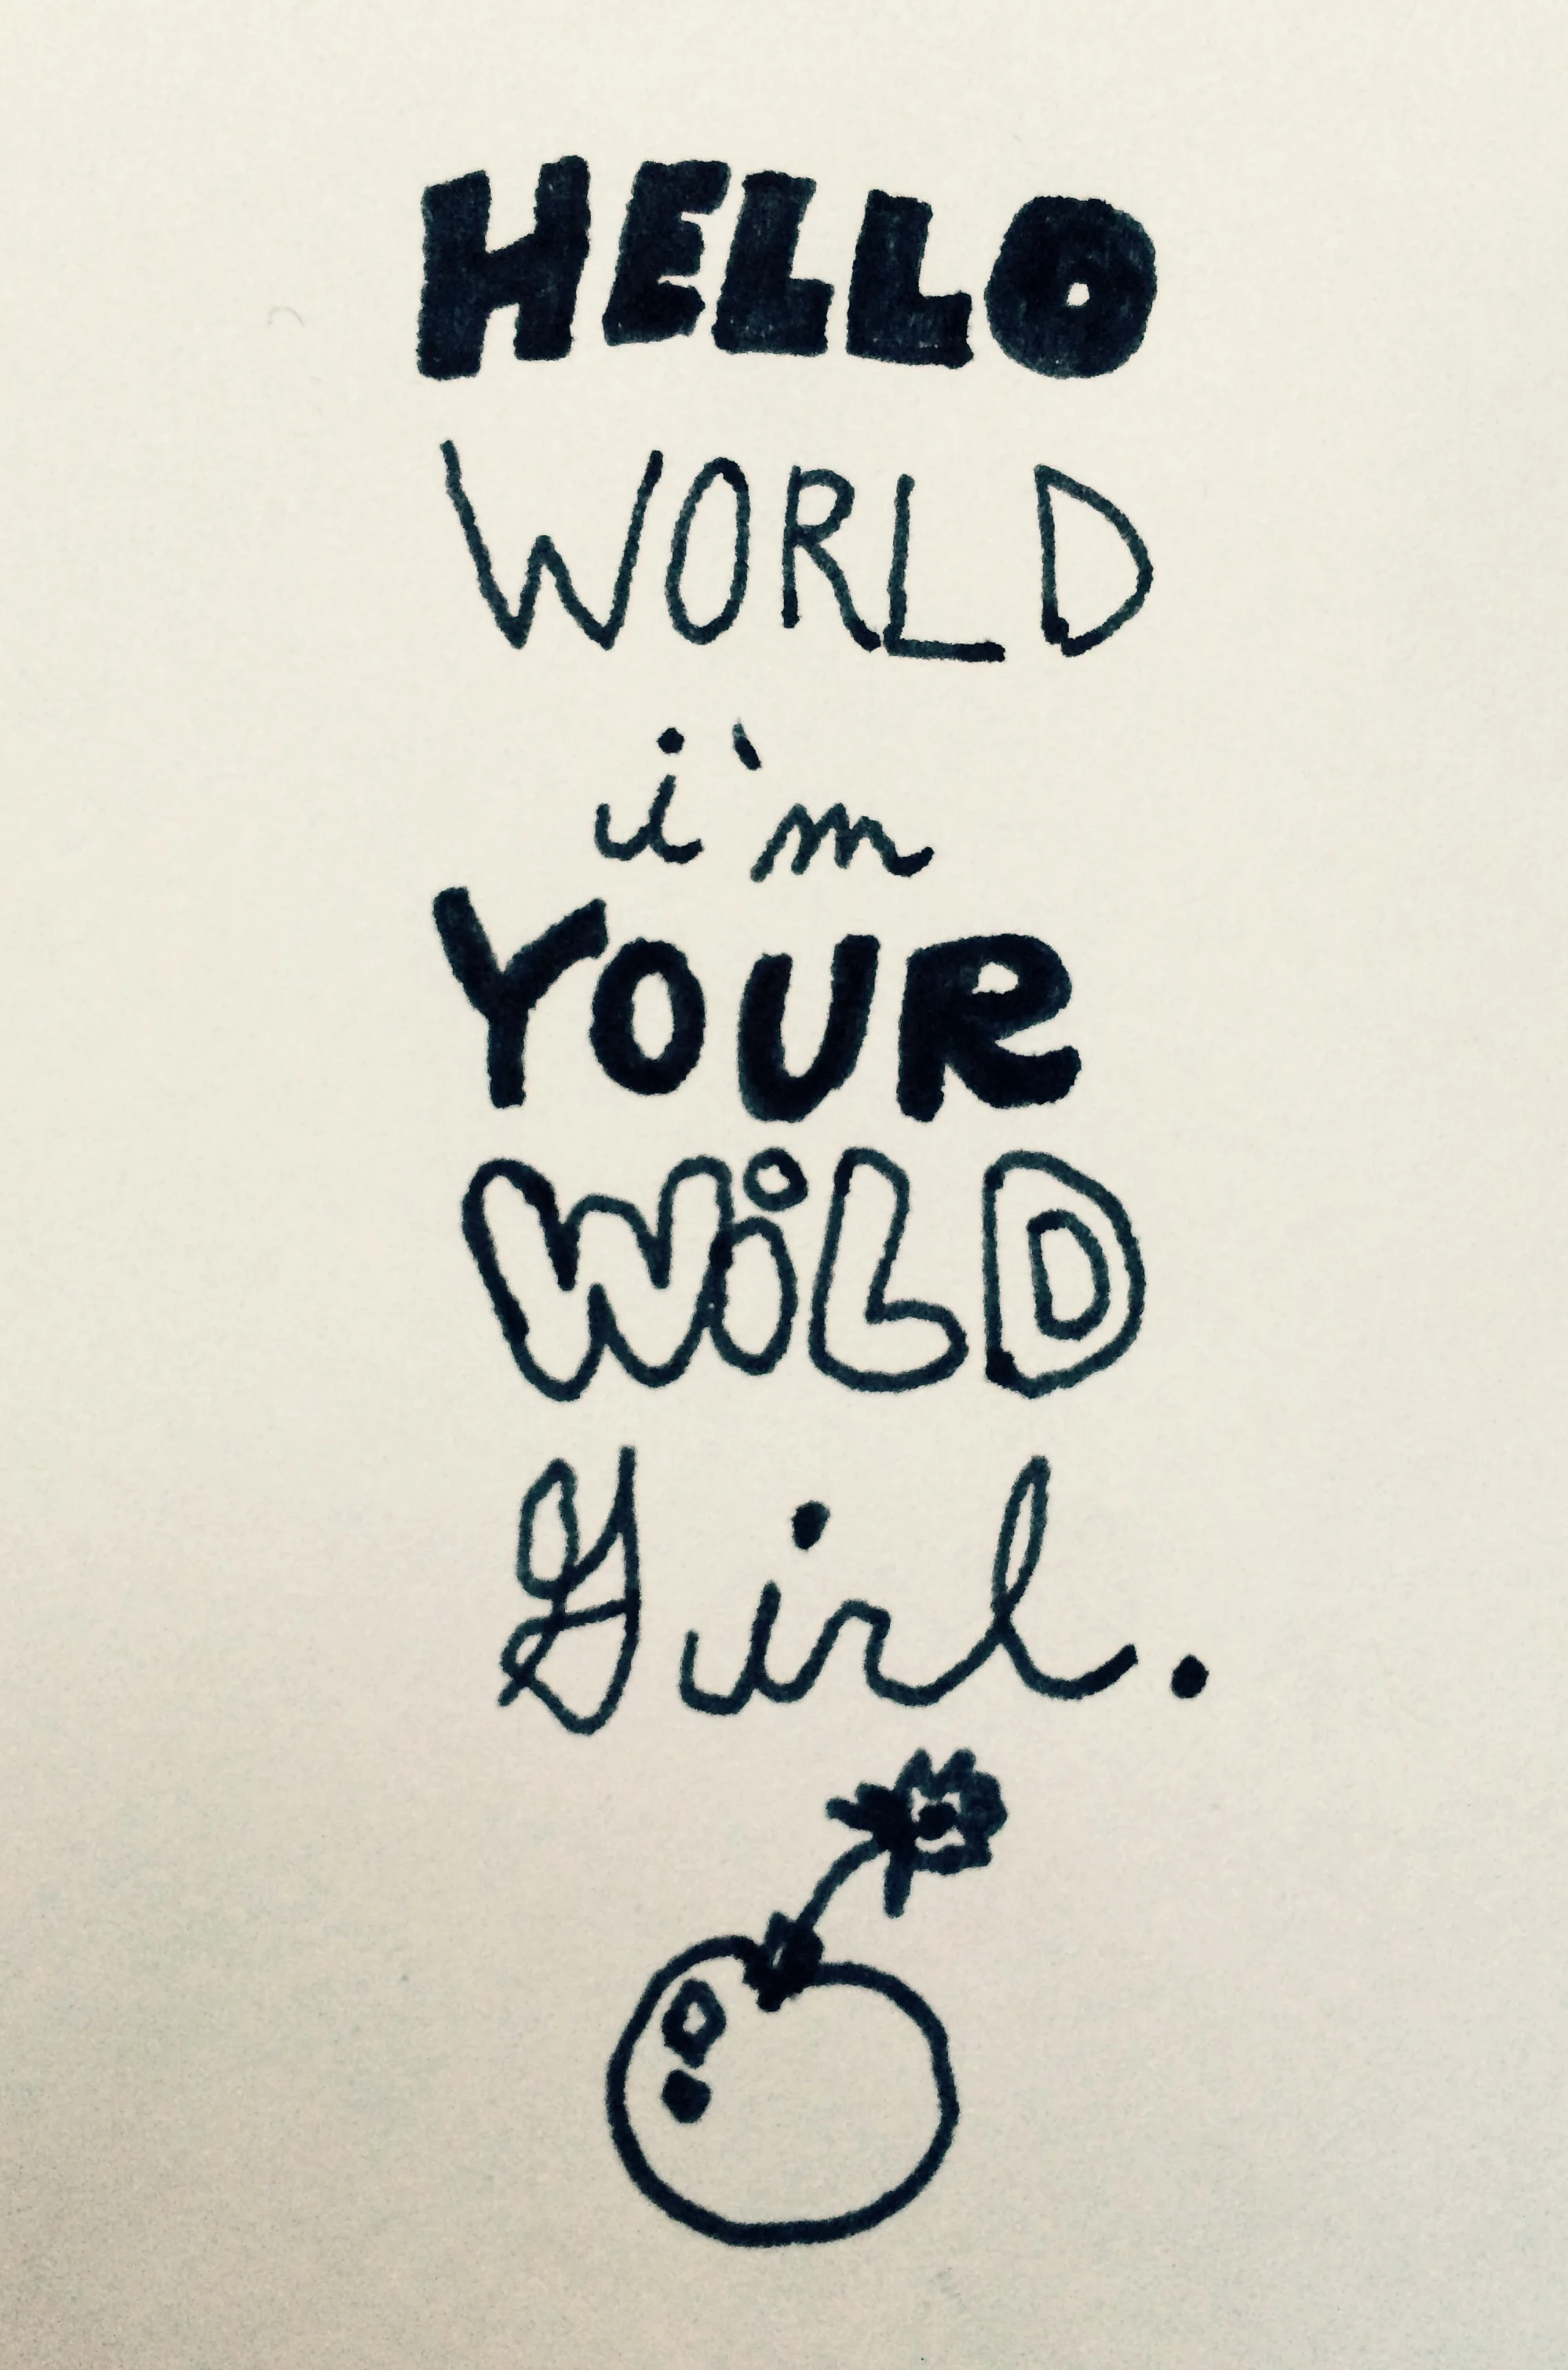 HELLO
WORLD
i`m
YOUR
WiLD
Girl.